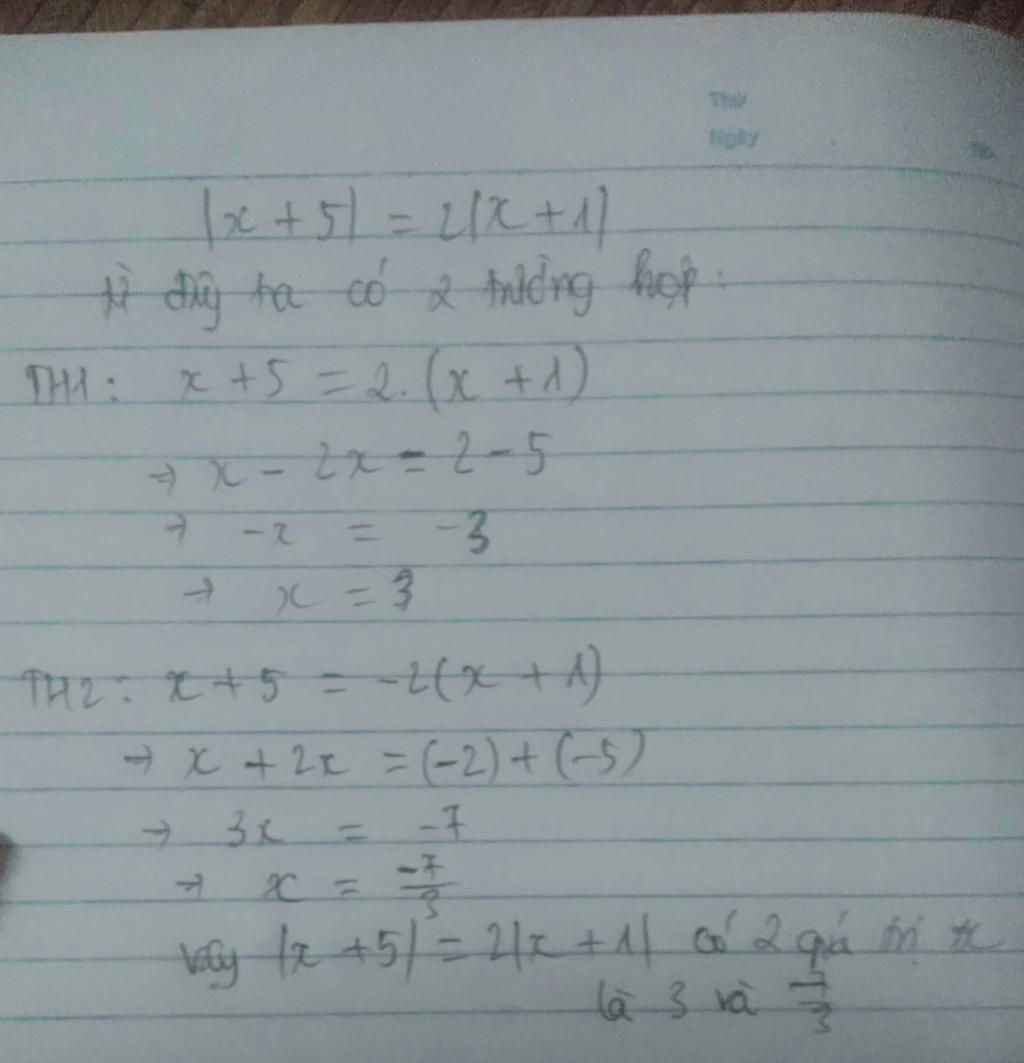 Thứ
Ngày
No.
|x + 5| = 2|x + 1|
từ đây ta có 2 trường hợp:
TH1: x + 5 = 2.(x + 1)
→ x - 2x = 2 - 5
→ -x = -3
→ x = 3
TH2: x + 5 = -2(x + 1)
→ x + 2x = (-2) + (-5)
→ 3x = -7
→ x = -7/3
vậy |x + 5| = 2|x + 1| có 2 giá trị x
là 3 và -7/3